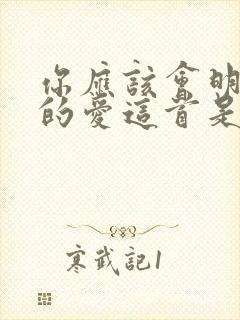 你應該會明
的愛這首是
寒武記1